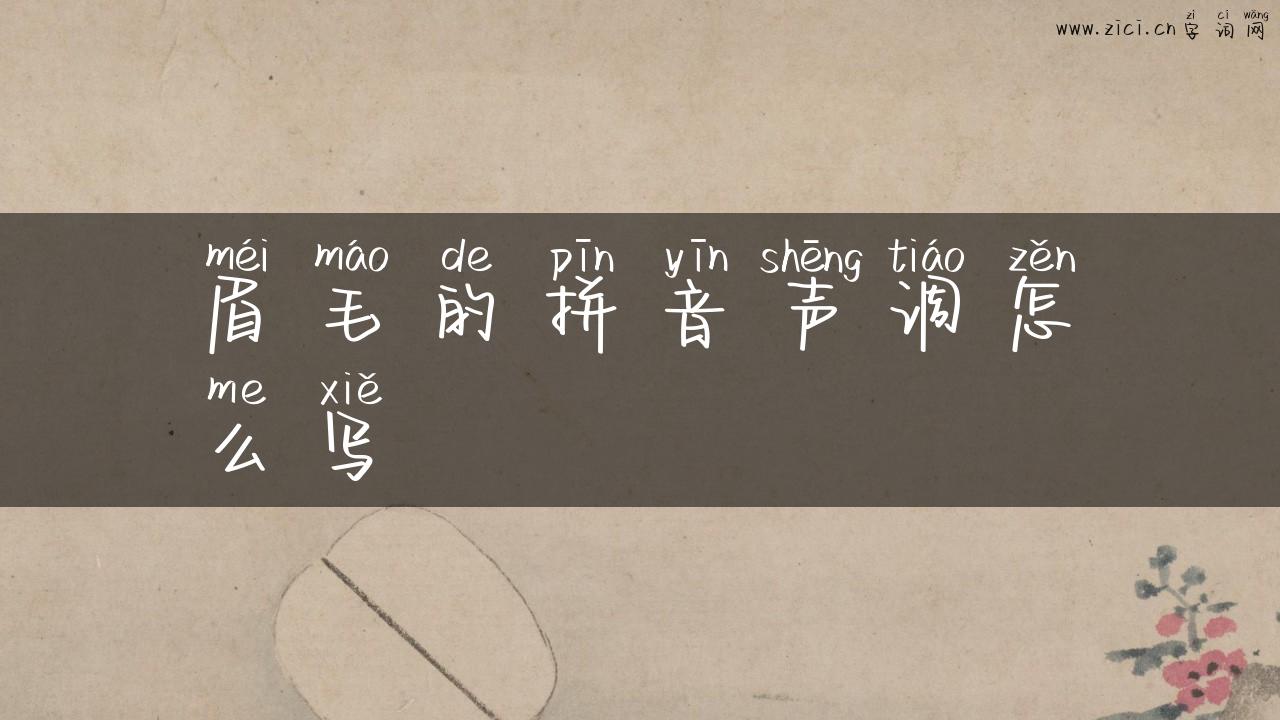 zì cí wǎng
www.zici.cn 字词网
méi máo de pīn yīn shēng tiáo zěn
眉毛的拼音声调怎
me xiě
么写